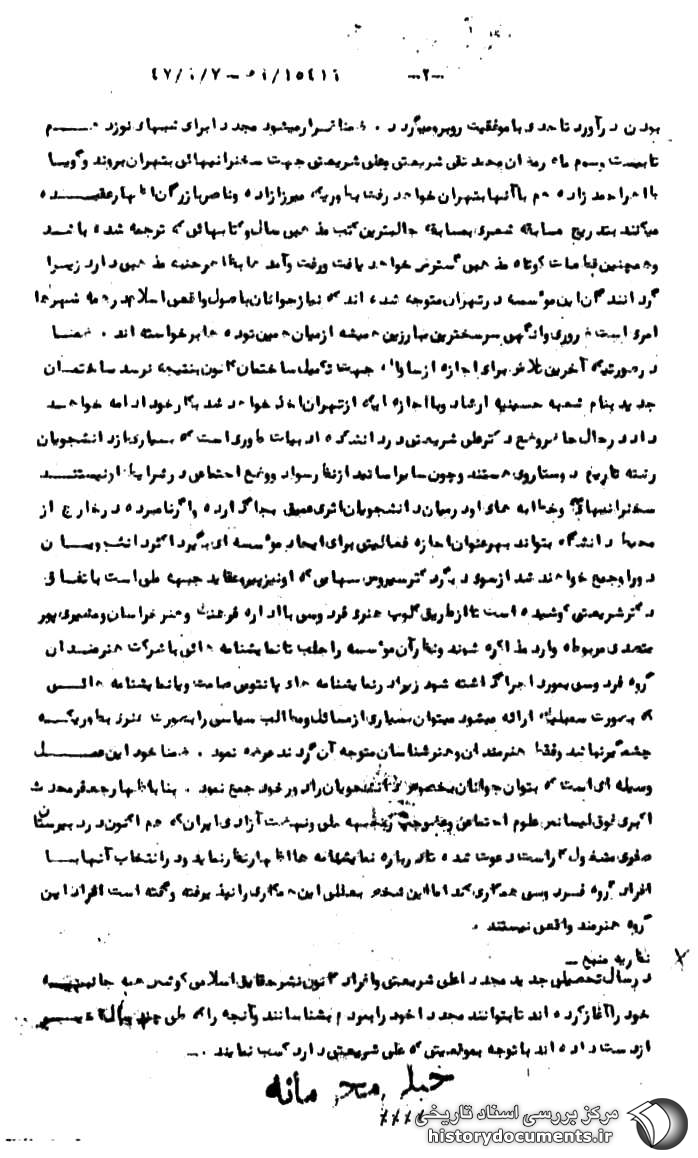 -۲- ۱۵۴۱۱/ه۱ - ۴۷/۱/۷
بودن درآورد تا حدی با موفقیت روبرو میگردد. ضمنا قرار میشود مجددا برای شبهای نوزدهم
تا بیست و سوم ماه رمضان محمد تقی شریعتی وعلی شریعتی جهت سخنرانیهائی بتهران بروند وگویا
با احمدزاده هم با آنها بتهران خواهد رفت بطوریکه میرزازاده وناصر بازرگان اظهار عقیده
میکنند بتدریج مسابقه شعری بمسابقه جالبترین کتب مذهبی سال وکتابهائی که ترجمه شده باشد
وهمچنین قطعات کوتاه مذهبی گسترش خواهد یافت ورفت وآمدها بظاهر جنبه مذهبی دارد زیرا
گردانندگان این مؤسسه در تهران متوجه شده اند که نیاز جوانان باصول واقعی اسلام در همه شهرها
امری است ضروری وانگهی سرسخترین مبارزین همیشه از میان همین توده ها برخواسته اند. ضمنا
درصورتیکه آخرین تلاش برای اجازه از ساواک جهت تکمیل ساختمان کانون بنتیجه نرسد ساختمان
جدید بنام شعبه حسینیه ارشاد وبا اجازه ایکه از تهران اخذ خواهد شد بکار خود ادامه خواهد
داد درحال حاضر وضع دکتر علی شریعتی در دانشکده ادبیات طوری است که بسیاری از دانشجویان
رشته تاریخ دوستار وی هستند وچون سایر اساتید از نظر سواد ووضع اجتماعی در شرایط او نیستند
سخنرانیهای وخطابه های او درمیان دانشجویان اثری عمیق بجا گذارده واگر نامبرده در خارج از
محیط دانشگاه بتواند بهر عنوان اجازه فعالیتی برای ایجاد مؤسسه ای بگیرد اکثر دانشجویان
دور او جمع خواهند شد از سوی دیگر دکتر سیروس سهامی که او نیز پیرو عقاید جبهه ملی است باتفاق
دکتر شریعتی کوشیده است تا از طریق کلوپ هنری فردوسی با اداره فرهنگ وهنر خراسان ومنصوری پور
متصدی مربوطه وارد مذاکره شوند ونظر آن مؤسسه را جلب تا نمایشنامه هائی با شرکت هنرمندان
گروه فردوسی بمورد اجرا گذاشته شود زیرا در نمایشنامه های پانتومی صامت ویا نمایشنامه هائی
که بصورت سمبلیک ارائه میشود میتوان بسیاری از مسائل ومطالب سیاسی را بصورت هنری بطوریکه
چشمگیر نباشد وفقط هنرمندان وهنرشناسان متوجه آن گردند عرضه نمود. ضمنا خود این عمل
وسیله ای است که بتوان جوانان مخصوص دانشجویان را دور خود جمع نمود. بنا باظهار جعفر محدث
اکبری فوق لیسانس علوم اجتماعی وعضو جبهه ملی ونهضت آزادی ایران که هم اکنون در دبیرستان
صفوی مشغول کار است دعوت شده تا درباره نمایشنامه ها اظهارنظر نماید ودر انتخاب آنها با
افراد گروه فردوسی همکاری کند اما این شخص بعللی این همکاری را نپذیرفته وگفته است افراد این
گروه هنرمند واقعی نیستند.
نظریه منبع-
درسال تحصیلی جدید مجددا علی شریعتی وافراد کانون نشر حقایق اسلامی کوشش همه جانبه
خود را آغاز کرده اند تا بتوانند مجددا خود را بمردم بشناسانند وآنچه را که طی چند سال اخیر
از دست داده اند با توجه بموقعیتی که علی شریعتی دارد کسب نمایند.-
خیلی محرمانه
××××
مرکز بررسی اسناد تاریخی
historydocuments.ir